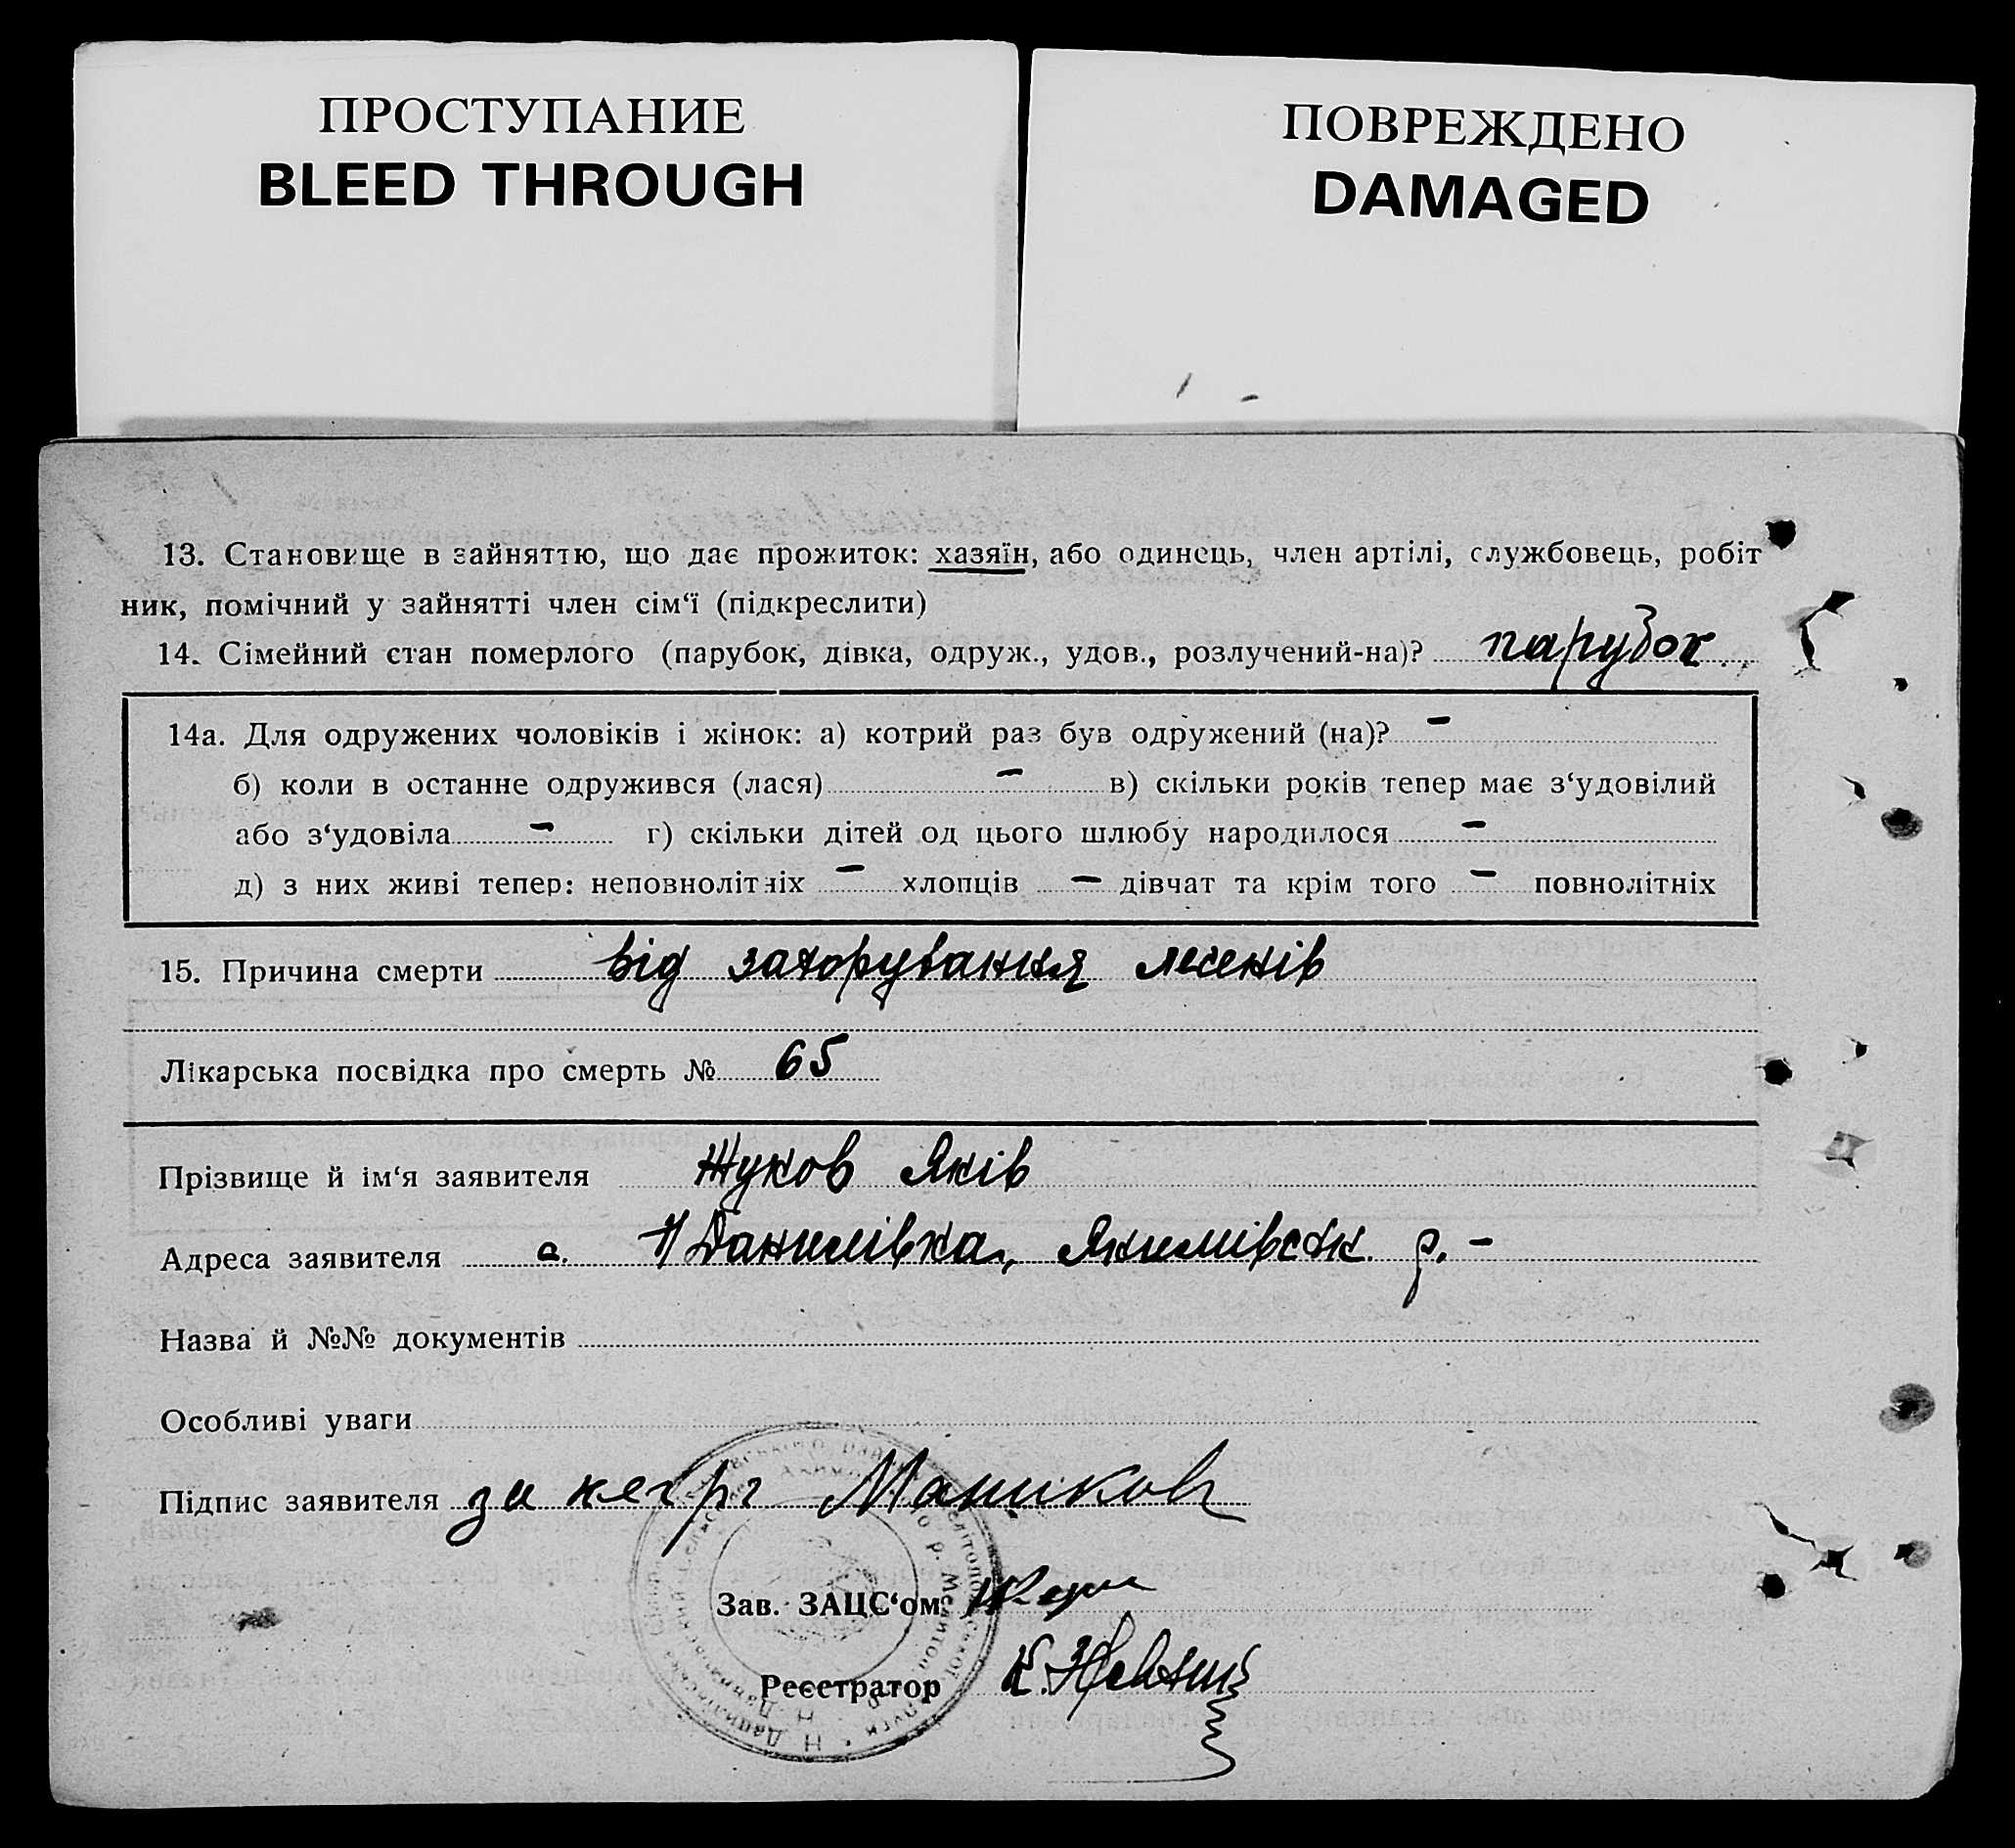 ПРОСТУПАНИЕ
BLEED THROUGH
ПОВРЕЖДЕНО
DAMAGED
13. Становище в зайняттю, що дає прожиток: хазяїн, або одинець, член артілі, службовець, робіт
ник, помічний у зайнятті член сім‘ї (підкреслити)
14. Сімейний стан померлого (парубок, дівка, одруж., удов., розлучений-на)? парубок
14а. Для одружених чоловіків і жінок: а) котрий раз був одружений (на)? –
б) коли в останне одружився (лася) – в) скільки років тепер має з‘удовілий
або з‘удовіла – г) скільки дітей од цього шлюбу народилося –
д) з них живі тепер: неповнолітніх – хлопців – дівчат та крім того – повнолітніх
15. Причина смерти від захорування легенів
Лікарська посвідка про смерть № 65
Прізвище й ім‘я заявителя Жуков Яків
Адреса заявителя с. Данилівка, Якимівськ. р. –
Назва й №№ документів
Особливі уваги
Підпис заявителя за
Зав. ЗАЦС‘ом
Реєстратор К.